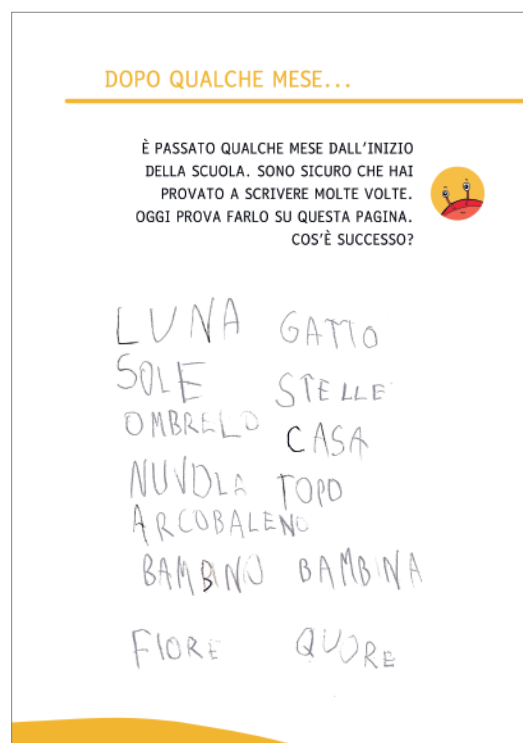 DOPO QUALCHE MESE...
È PASSATO QUALCHE MESE DALL'INIZIO
DELLA SCUOLA. SONO SICURO CHE HAI
PROVATO A SCRIVERE MOLTE VOLTE.
OGGI PROVA FARLO SU QUESTA PAGINA.
COS'È SUCCESSO?
LUNA GATTO
SOLE STELLE
OMBRELO CASA
NUVOLA TOPO
ARCOBALENO
BAMBINO BAMBINA
FIORE QUORE